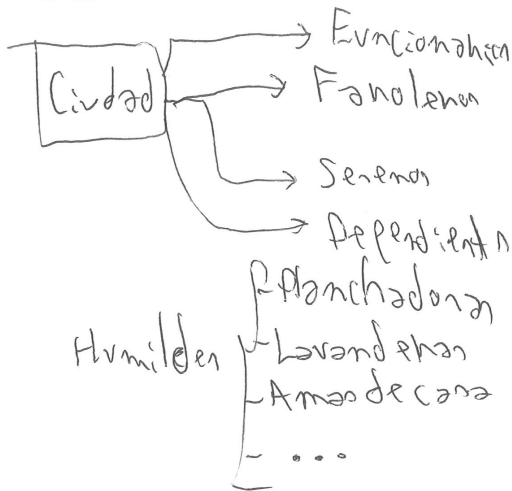 Ciudad
Funcionarios
Faroleros
Serenos
Dependientes
Humildes
- Planchadoras
- Lavanderas
- Amas de casa
- ...